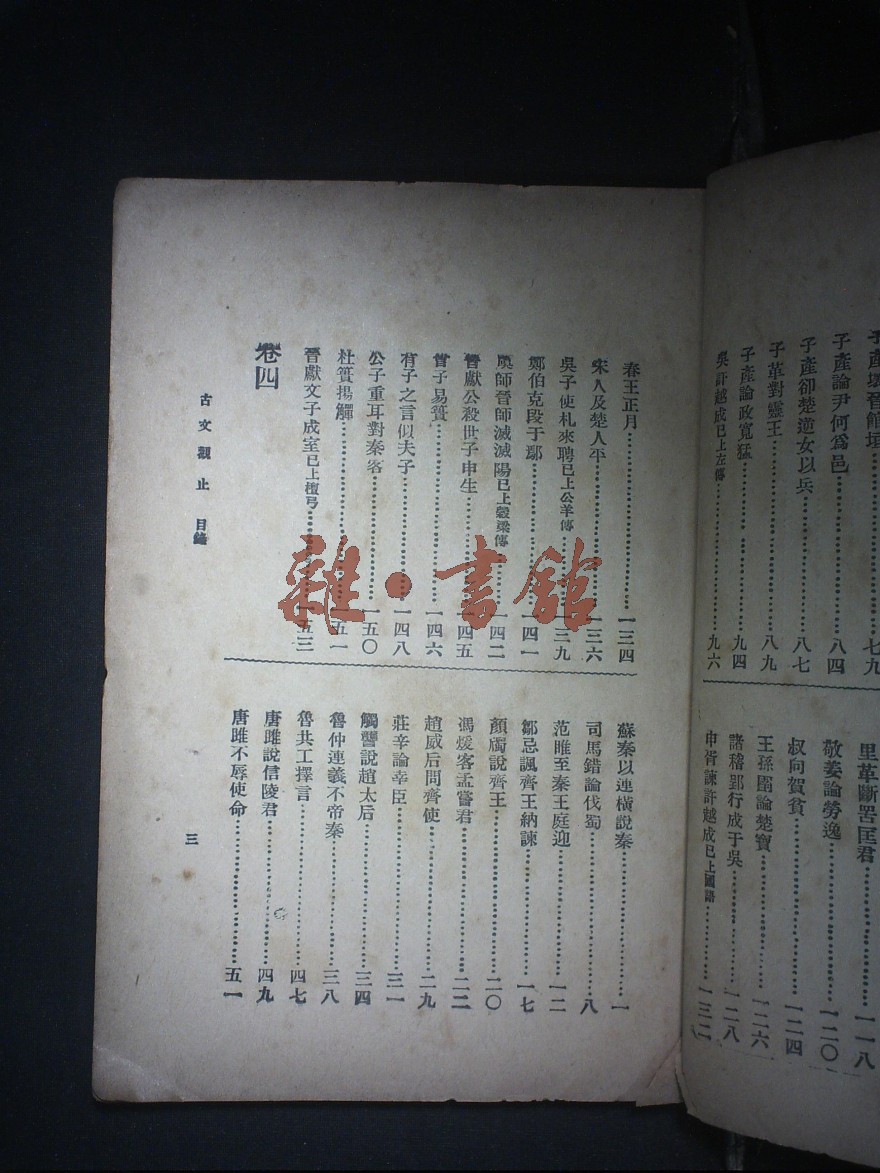 子產論尹何爲邑……八四
子產卻楚逆女以兵……八七
子革對靈王……八九
子產論政寬猛……九四
吳許越成已上左傳……九六
里革斷罟匡君……一一八
敬姜論勞逸……一二〇
叔向賀貧……一二四
王孫圉論楚寶……一二六
諸稽郢行成于吳……一二八
申胥諫許越成已上國語……一三二
春王正月……一三四
宋人及楚人平……一三六
吳子使札來聘已上公羊傳……一三九
鄭伯克段于鄢……一四一
虞師晉師滅滅陽已上穀梁傳……一四二
晉獻公殺世子申生……一四五
曾子易簀……一四六
有子之言似夫子……一四八
公子重耳對秦客……一五〇
杜簣揚觶……一五一
晉獻文子成室已上檀弓……一五三
卷四
蘇秦以連橫說秦……一
司馬錯論伐蜀……八
范睢至秦王庭迎……一二
鄒忌諷齊王納諫……一七
顏斶說齊王……二〇
馮煖客孟嘗君……二二
趙威后問齊使……二九
莊辛論幸臣……三一
觸讋說趙太后……三四
魯仲連義不帝秦……三八
魯共工擇言……四七
唐雎說信陵君……四九
唐雎不辱使命……五一
古文觀止 目錄
三
雜·書館